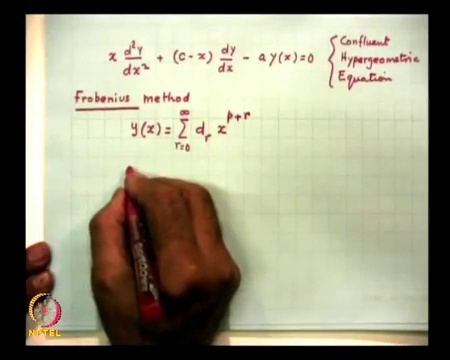 x d²y/dx² + (c-x) dy/dx - a y(x) = 0 { Confluent
Hypergeometric
Equation
Frobenius method
y(x) = ∑_{r=0}^{∞} d_r x^{p+r}
NPTEL